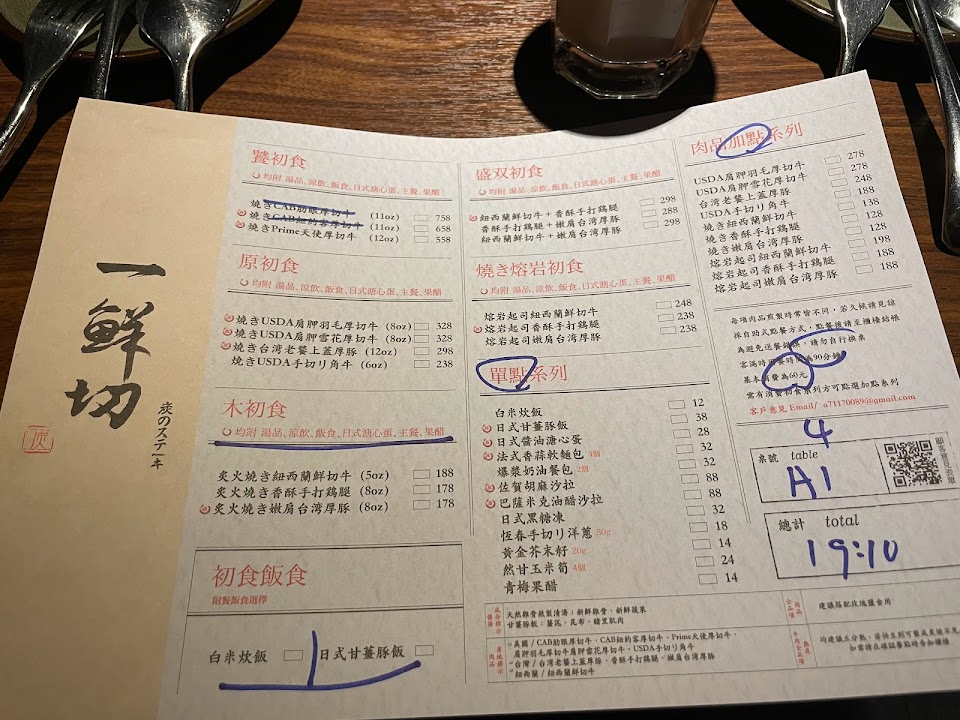 一鮮切
炭のステーキ
炭
饕初食
均附 湯品、涼飲、飯食、日式溏心蛋、主餐、果醋
燒きCAB肋眼厚切牛 (11oz) 758
燒きCAB紐約客厚切牛 (11oz) 658
燒きPrime天使厚切牛 (12oz) 558
原初食
均附 湯品、涼飲、飯食、日式溏心蛋、主餐、果醋
燒きUSDA肩胛羽毛厚切牛 (8oz) 328
燒きUSDA肩胛雪花厚切牛 (8oz) 328
燒き台湾老饕上蓋厚豚 (12oz) 298
燒きUSDA手切り角牛 (6oz) 248
木初食
均附 湯品、涼飲、飯食、日式溏心蛋、主餐、果醋
炙火燒き紐西蘭鮮切牛 (5oz) 188
炙火燒き香酥手打鶏腿 (8oz) 178
炙火燒き嫩肩台湾厚豚 (8oz) 178
初食飯食
附餐飯食選擇
白米炊飯
日式甘薑豚飯
盛双初食
均附 湯品、涼飲、飯食、日式溏心蛋、主餐、果醋
紐西蘭鮮切牛+香酥手打鶏腿 298
香酥手打鶏腿+嫩肩台湾厚豚 288
紐西蘭鮮切牛+嫩肩台湾厚豚 298
燒き熔岩初食
均附 湯品、涼飲、飯食、日式溏心蛋、主餐、果醋
熔岩起司紐西蘭鮮切牛 248
熔岩起司香酥手打鶏腿 238
熔岩起司嫩肩台湾厚豚 238
單點系列
白米炊飯 12
日式甘薑豚飯 38
日式醬油溏心蛋 28
法式香蒜軟麵包 4個 32
爆漿奶油餐包 2個 32
佐賀胡麻沙拉 88
巴薩米克油醋沙拉 88
日式黑糖凍 32
恆春手切り洋蔥 50g 18
黃金芥末籽 20g 14
然甘玉米筍 4個 24
青梅果醋 14
肉品加點系列
USDA肩胛羽毛厚切牛 278
USDA肩胛雪花厚切牛 278
台湾老饕上蓋厚豚 248
USDA手切り角牛 188
燒き紐西蘭鮮切牛 138
燒き香酥手打鶏腿 128
燒き嫩肩台湾厚豚 128
熔岩起司紐西蘭鮮切牛 198
熔岩起司香酥手打鶏腿 188
熔岩起司嫩肩台湾厚豚 188
每項肉品煎製時常皆不同,若久候請見諒
採自助式點餐方式,點餐後請至櫃檯結帳
為避免送餐錯誤,請勿自行換桌
客滿時用餐時間為90分鐘
基本消費為60元
需有消費初食系列方可點選加點系列
客戶意見 Email/ a71170089@gmail.com
4
桌號 table
A1
顧客意見表單
總計 total
19:10
天然雞骨熬製清湯:新鮮雞骨、新鮮蔬菜
甘薑豚飯:薑泥、昆布、豬里肌肉
美國/CAB肋眼厚切牛、CAB紐約客厚切牛、Prime天使厚切牛、
肩胛羽毛厚切牛肩胛雪花厚切牛、USDA手切り角牛
台灣/台湾老饕上蓋厚豚、香酥手打鶏腿、嫩肩台湾厚豚
紐西蘭/紐西蘭鮮切牛
建議搭配玫瑰鹽食用